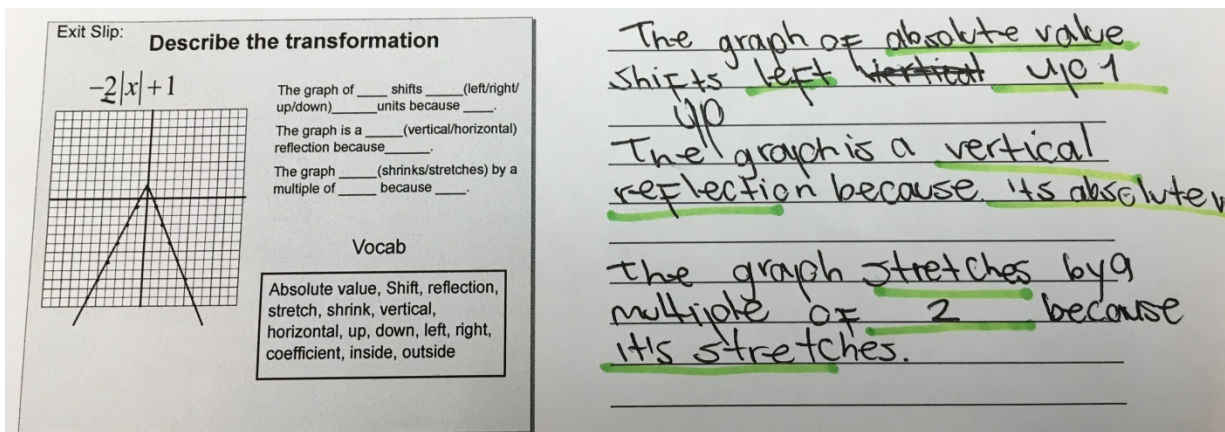 Exit Slip:
Describe the transformation
-2|x|+1
The graph of ____ shifts _____(left/right/
up/down)_____units because ____.
The graph is a _____(vertical/horizontal)
reflection because______.
The graph _____(shrinks/stretches) by a
multiple of _____ because ____.
Vocab
Absolute value, Shift, reflection,
stretch, shrink, vertical,
horizontal, up, down, left, right,
coefficient, inside, outside
The graph of absolute value
shifts left vertical up 1
up
The graph is a vertical
reflection because its absolute v
the graph stretches by a
multiple of 2 because
it's stretches.